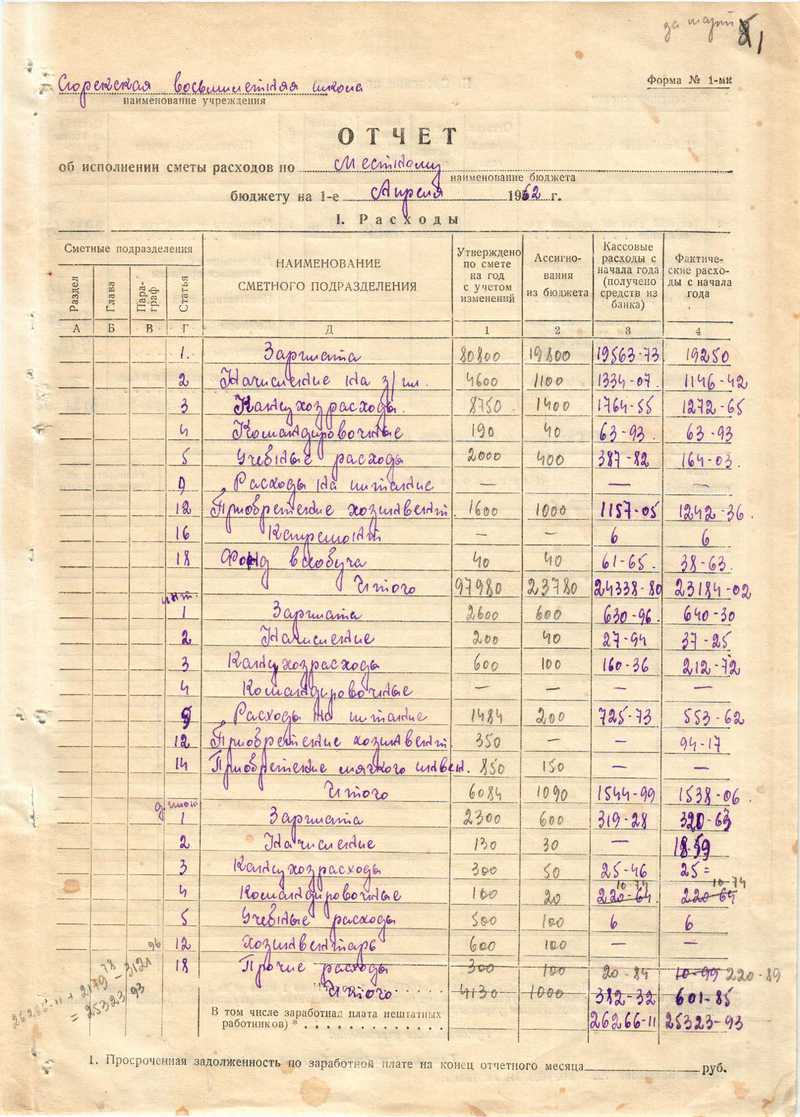 за март
1
Сюрекская восьмилетняя школа
наименование учреждения
Форма № 1-мк
ОТЧЕТ
об исполнении сметы расходов по Местному
наименование бюджета
бюджету на 1-е Апреля 1962 г.
I. Расходы
Сметные подразделения НАИМЕНОВАНИЕ СМЕТНОГО ПОДРАЗДЕЛЕНИЯ Утверждено по смете на год с учетом изменений Ассигнования из бюджета Кассовые расходы с начала года (получено средств из банка) Фактические расходы с начала года
Раздел Глава Параграф Статья
А Б В Г Д 1 2 3 4
1. Зарплата 80800 19800 19563-73 19250
2 Начисление на з/пл. 4600 1100 1334-07. 1146-42
3 Канцхозрасходы. 8750 1400 1764-55 1272-65
4 Командировочные 190 40 63-93. 63-93
5 Учебные расходы 2000 400 387-82 164-03.
9 Расходы на питание — — —
12 Приобретение хозинвент. 1600 1000 1157-05 1242-36.
16 Капремонт — — б б
18 Фонд всеобуча 40 40 61-65. 38-63.
Итого 97980 23780 24338-80 23184-02
инт.
1 Зарплата 2600 600 630-96. 640-30
2 Начисление 200 40 27-94 37-25
3 Канцхозрасходы 600 100 160-36 212-72
4 Командировочные — — — —
5 Расходы на питание 1484 200 725-73 553-62
12 Приобретение хозинвент. 350 — — 94-17
14 Приобретение мягкого инвен. 850 150 — —
Итого 6084 1090 1544-99 1538-06.
1 Зарплата 2300 600 319-28 320-63
2 Начисление 130 30 — 18-59
3 Канцхозрасходы 300 50 25-46 25=
10-74 10-74
4 Командировочные 100 20 220-64. 220-64
5 Учебные расходы 500 100 б б
12 Хозинвентарь 600 100 — —
18 Прочие расходы 300 100 20-84 10-99 220-89
Итого 4130 1000 382-32 601-85
В том числе заработная плата нештатных
работников) * 26266-11 25323-93
26266-11 + 2179-78 - 3121-96
= 25323-93
1. Просроченная задолженность по заработной плате на конец отчетного месяца руб.